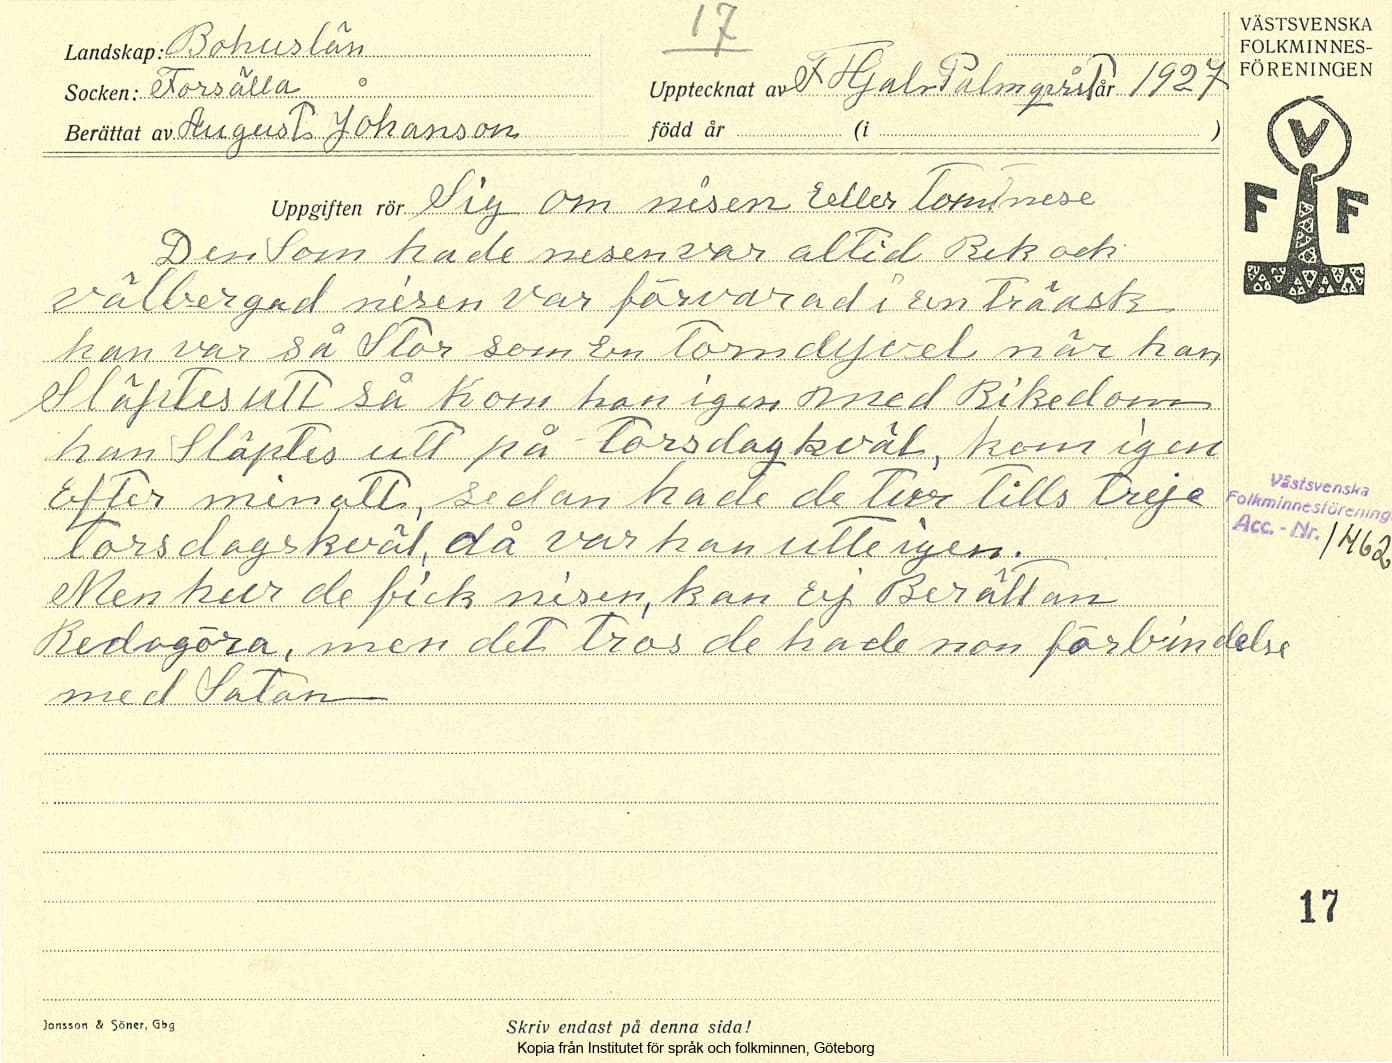 17
Landskap: Bohuslän
Socken: Forsälla
Berättat av August Johanson
Upptecknat av F Hjalr Palmqvist år 1927
född år (i )
VÄSTSVENSKA
FOLKMINNES-
FÖRENINGEN
V
F F
Uppgiften rör Sig om nisen Eeller Tomtnese
Den Som hade nesen var altid Rik och
välbergad nisen var förvarad i en träask
han var så Stor som En Torndyvel när han
Släptes utt så kom han igen med Rikedom
han Släptes utt på torsdagkväl, kom igen
Efter minatt, sedan hade de tur tills treje
torsdagskväl, då var han utte igen.
Men hur de fick nisen, kan Ej Berättan
Redogöra, men det tros de hade non förbindelse
med Satan
Västsvenska
Folkminnesförening
Acc. - Nr. 1462
17
Jonsson & Söner, Gbg
Skriv endast på denna sida!
Kopia från Institutet för språk och folkminnen, Göteborg